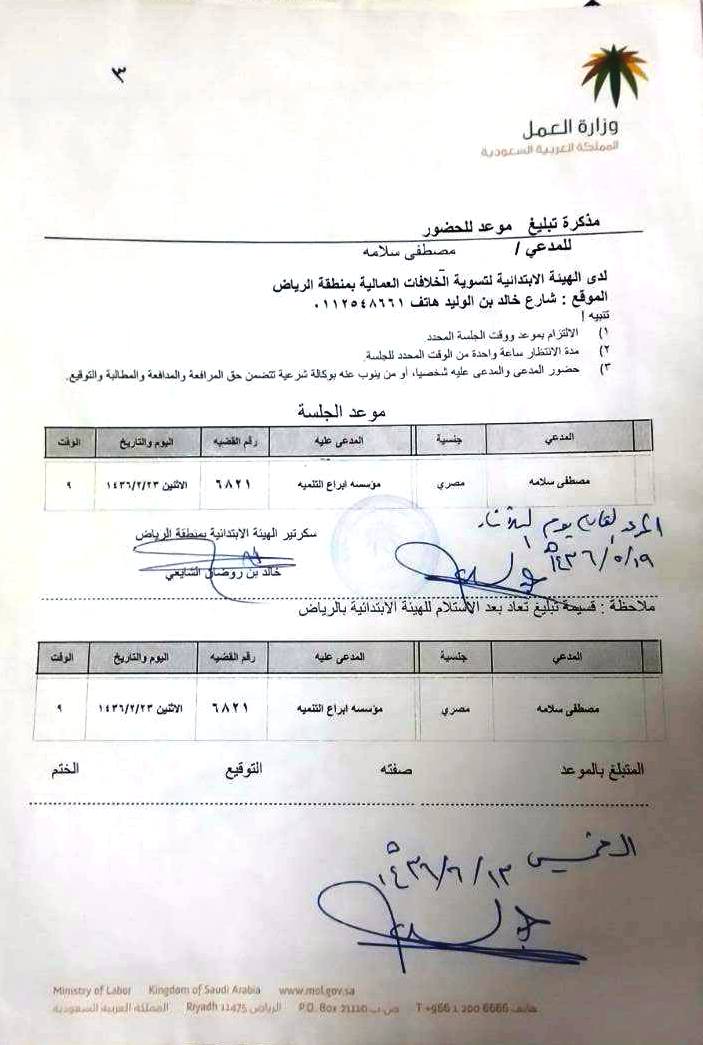 ٣
وزارة العمل
المملكة العربية السعودية
مذكرة تبليغ موعد للحضور
للمدعي / مصطفى سلامه
لدى الهيئة الابتدائية لتسوية الخلافات العمالية بمنطقة الرياض
الموقع : شارع خالد بن الوليد هاتف ٠١١٢٥٤٨٦٦١
تنبيه !
١) الالتزام بموعد ووقت الجلسة المحدد.
٢) مدة الانتظار ساعة واحدة من الوقت المحدد للجلسة.
٣) حضور المدعى والمدعى عليه شخصيا، أو من ينوب عنه بوكالة شرعية تتضمن حق المرافعة والمدافعة والمطالبة والتوقيع.
موعد الجلسة
المدعي جنسية المدعى عليه رقم القضيه اليوم والتاريخ الوقت
مصطفى سلامه مصري مؤسسه ابراع التنميه ٦٨٢١ الاثنين ١٤٣٦/٢/٢٣ ٩
يوم
١٤٣٦/٥/١٩ هـ
سكرتير الهيئة الابتدائية بمنطقة الرياض
خالد بن روضان الشايعي
ملاحظة : قسيمة تبليغ تعاد بعد الاستلام للهيئة الابتدائية بالرياض
المدعي جنسية المدعى عليه رقم القضيه اليوم والتاريخ الوقت
مصطفى سلامه مصري مؤسسه ابراع التنميه ٦٨٢١ الاثنين ١٤٣٦/٢/٢٣ ٩
المتبلغ بالموعد صفته التوقيع الختم
الخميس ١٤٣٦/٦/١٣ هـ
Ministry of Labor Kingdom of Saudi Arabia www.mol.gov.sa
المملكة العربية السعودية Riyadh 11475 الرياض P.O. Box 21110 ص.ب T +966 1 200 6666 هاتف